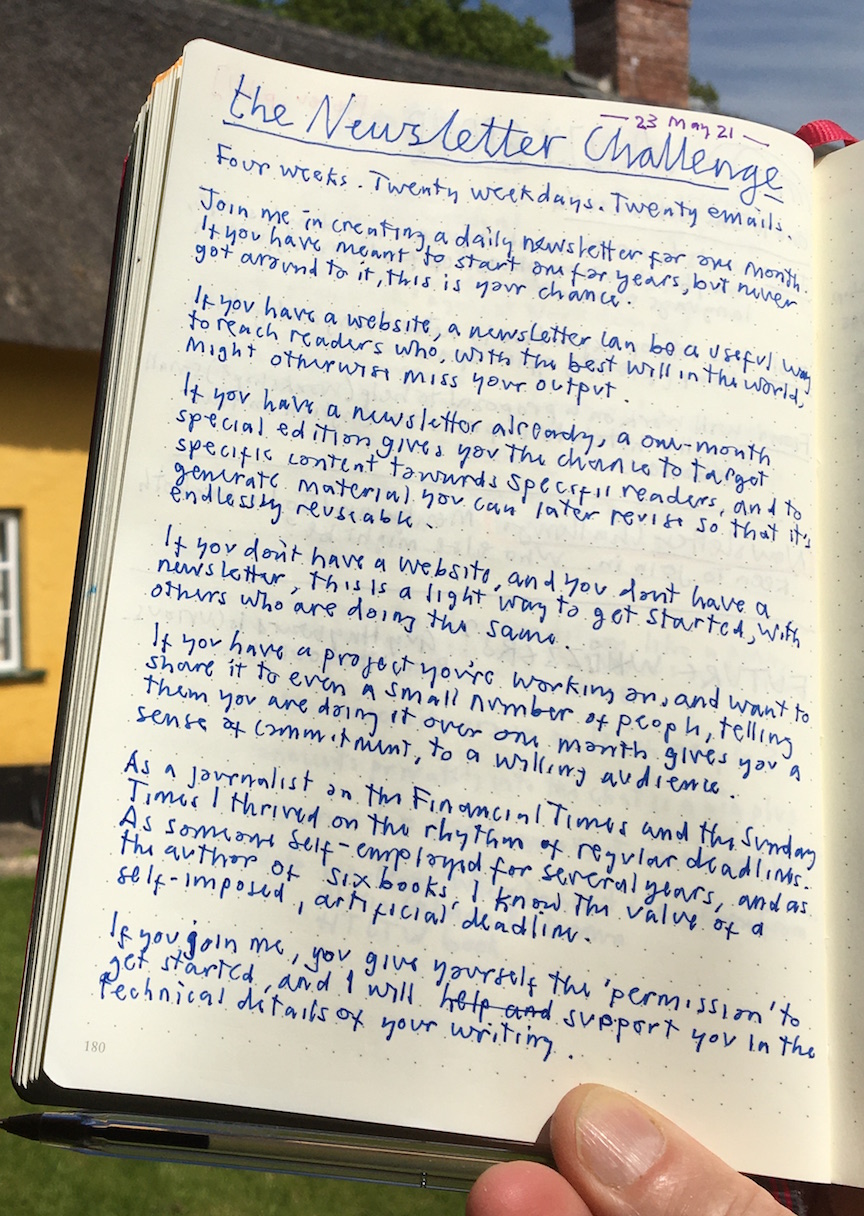 — 23 May 21 —
the Newsletter Challenge
Four weeks. Twenty weekdays. Twenty emails.
Join me in creating a daily newsletter for one month.
If you have meant to start one for years, but never
got around to it, this is your chance.
If you have a website, a newsletter can be a useful way
to reach readers who, with the best will in the world,
might otherwise miss your output.
If you have a newsletter already, a one-month
special edition gives you the chance to target
specific content towards specific readers, and to
generate material you can later revise so that it's
endlessly reuseable.
If you don't have a website, and you don't have a
newsletter, this is a light way to get started, with
others who are doing the same.
If you have a project you're working on, and want to
share it to even a small number of people, telling
them you are doing it over one month gives you a
sense of commitment, to a willing audience.
As a journalist on the Financial Times and the Sunday
Times I thrived on the rhythm of regular deadlines.
As someone self-employed for several years, and as
the author of six books, I know the value of a
self-imposed, artificial deadline.
If you join me, you give yourself the 'permission' to
get started, and I will help and support you in the
technical details of your writing.
180